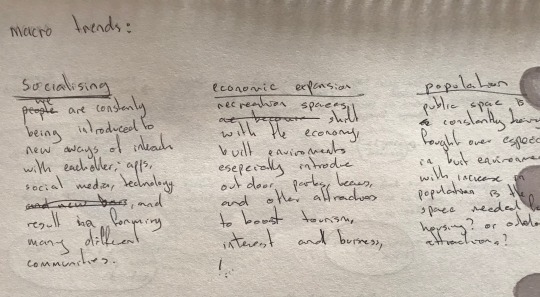 macro trends:
Socialising
we
people are constantly
being introduced to
new aways of interact
with eachother; apps,
social media, technology
and new bars, and
result in a forming
many different
communities.
economic expansion
recreation spaces
are become shift
with the economy,
built enviroments
esepecially introduce
outdoor, parks,
and other attractions
to boost tourism,
interest and buisness,
population
public space is
constantly
fought over
in built
with increase in
population is the
space needed
housing? or
attractions?